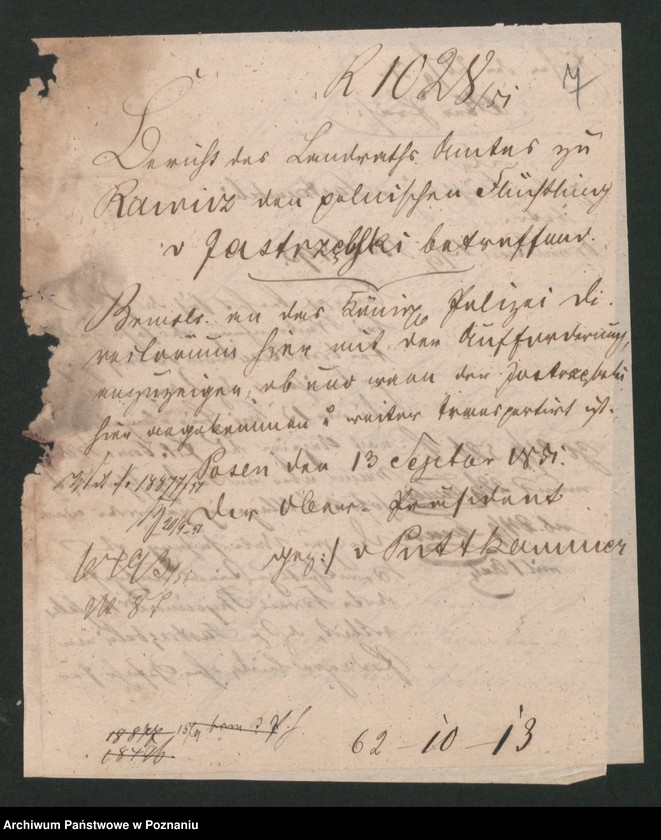 R 1028/51
7
Bericht des Landraths Amtes zu
Rawicz den polnischen Flüchtling
v Jastrzębski betreffend.
an das Königl Polizei Di-
rectorium hier mit der Aufforderung,
anzuzeigen, ob und wann der Jastrzębski
hier angekommen u weiter transportirt ist.
Posen den 13 Septbr 1851.
Der Ober-Präsident
gez:/ v Puttkammer
62-10-13
Archiwum Państwowe w Poznaniu